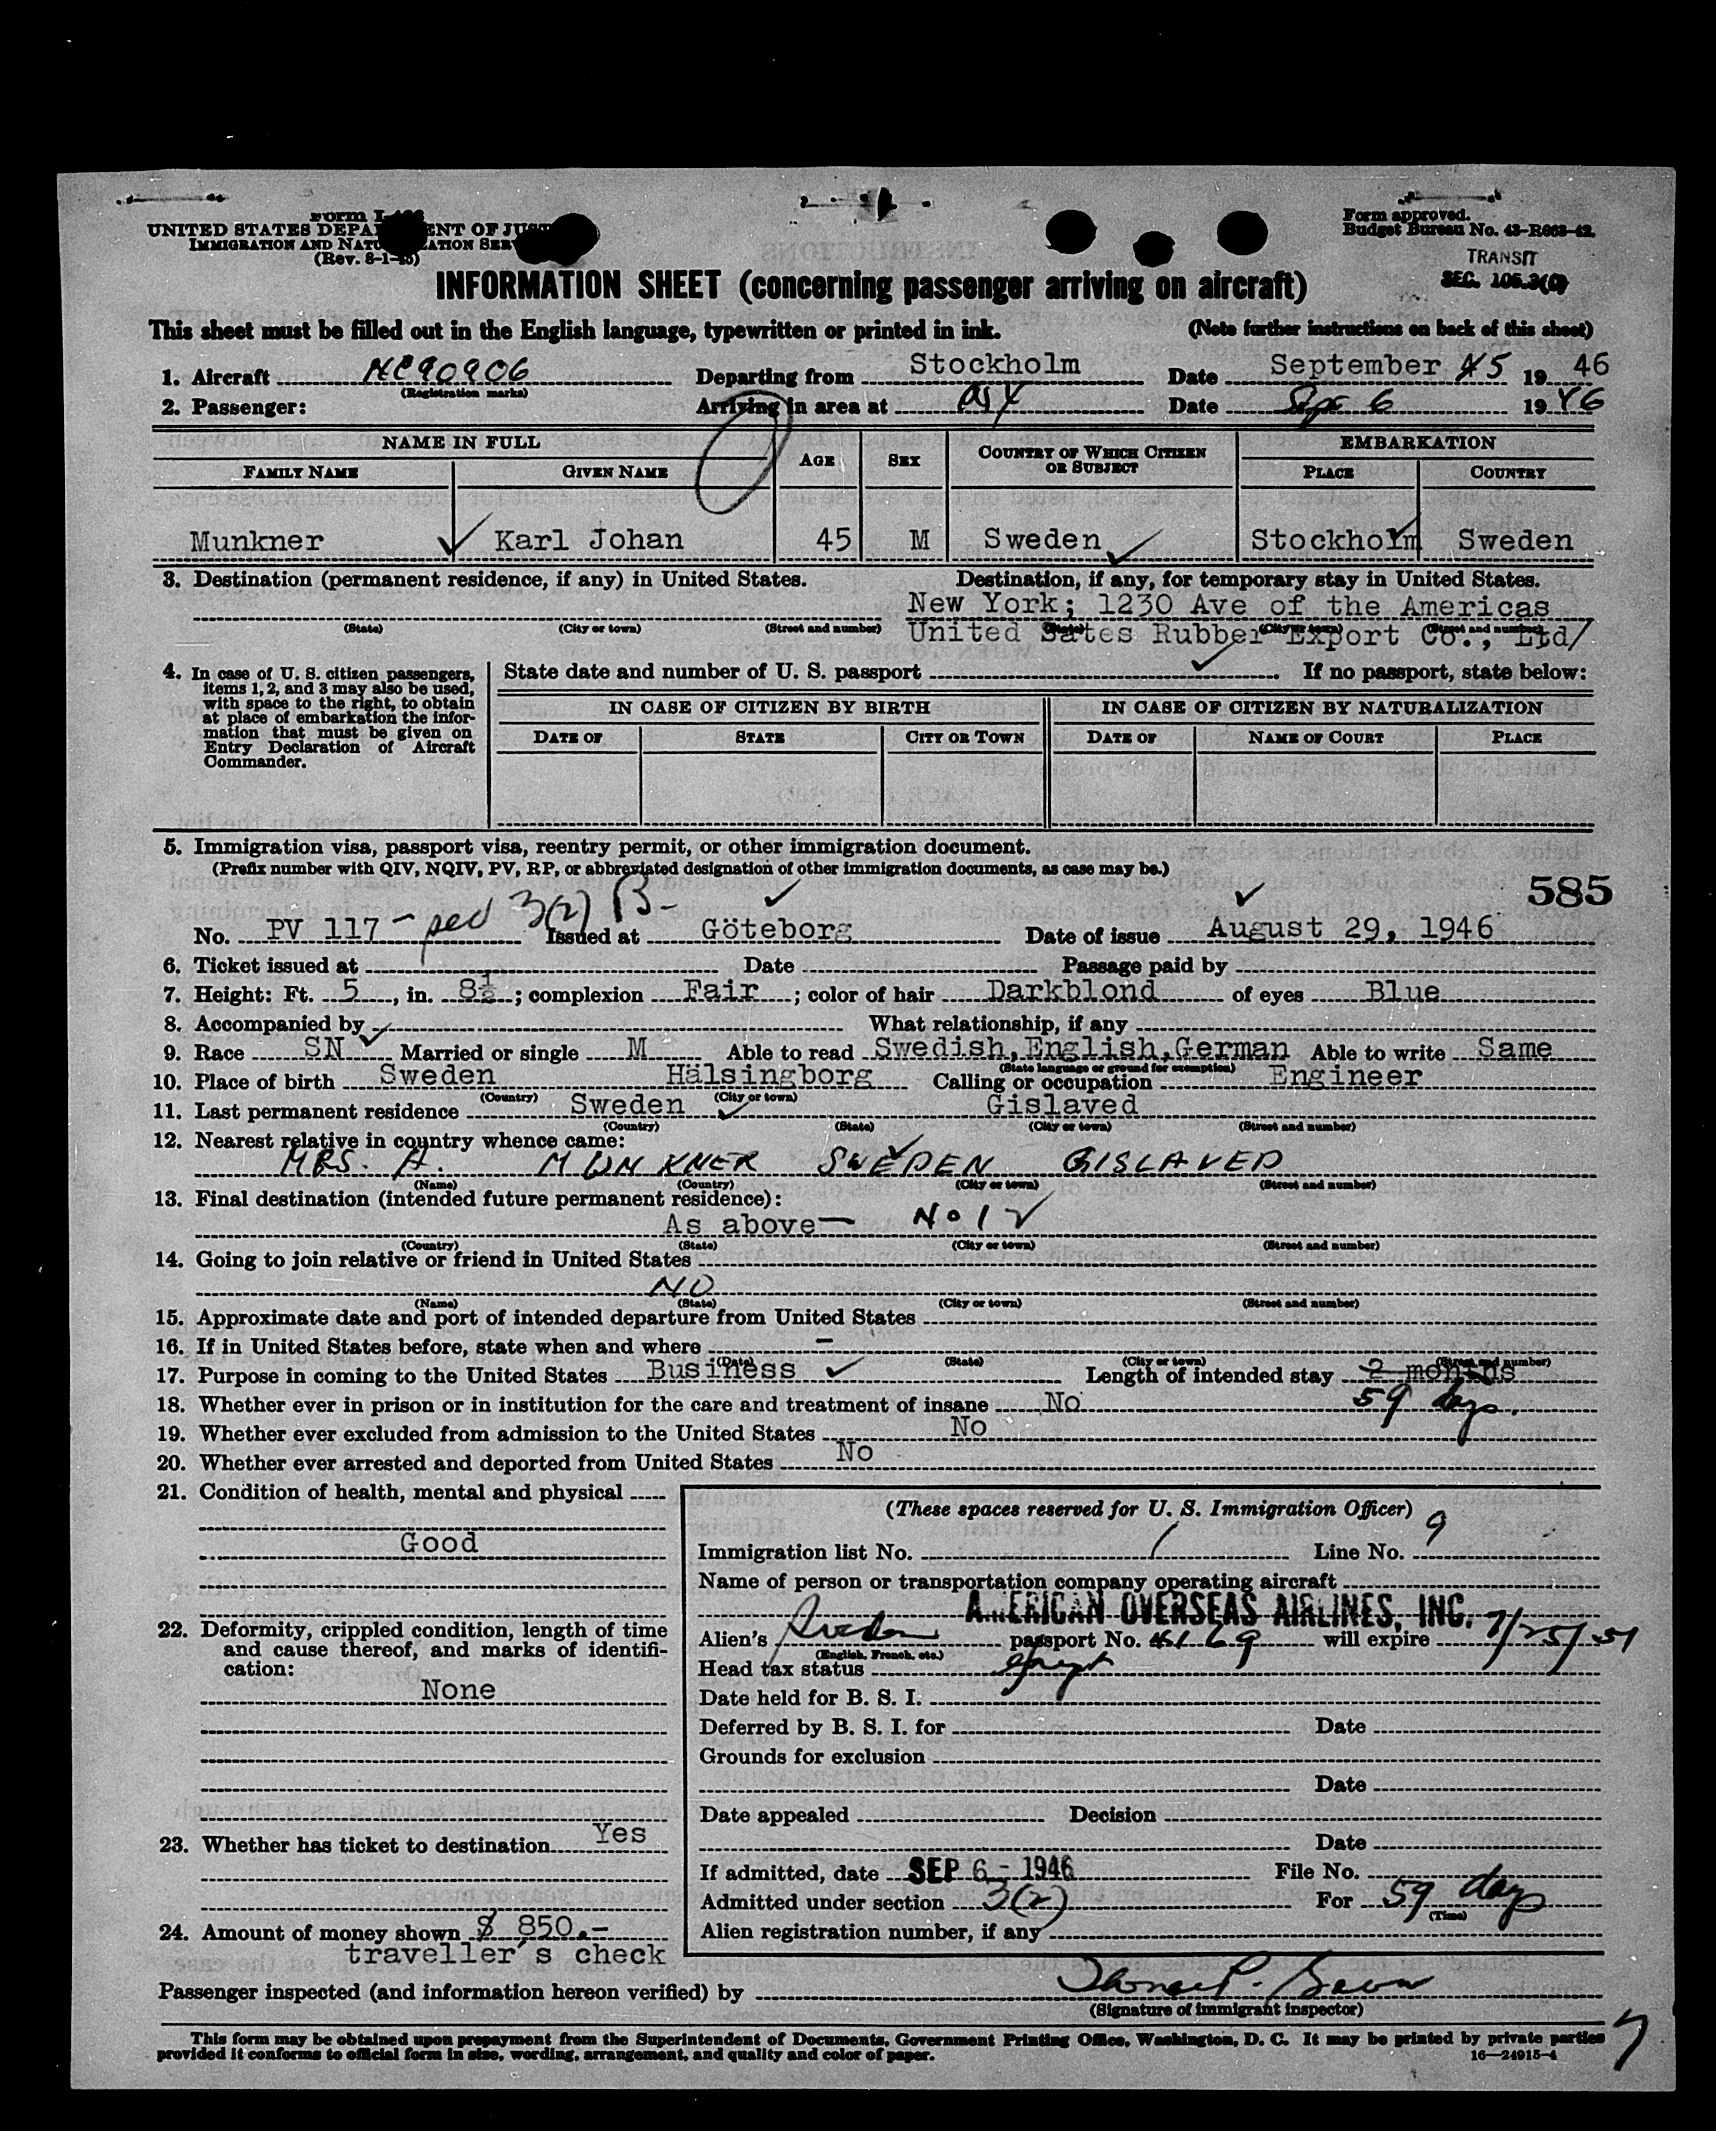 Form I-
UNITED STATES DEPA ENT OF JUST
IMMIGRATION AND NATU ATION SER
(Rev. 8-1-45)
Form approved.
Budget Bureau No. 43-R063-42.
TRANSIT
SEC. 105.3(C)
INFORMATION SHEET (concerning passenger arriving on aircraft)
This sheet must be filled out in the English language, typewritten or printed in ink. (Note further instructions on back of this sheet)
1. Aircraft NC90906 Departing from Stockholm Date September 5 19 46
(Registration marks)
2. Passenger: Arriving in area at Date Sept 6 19 46
NAME IN FULL AGE SEX COUNTRY OF WHICH CITIZEN OR SUBJECT EMBARKATION
FAMILY NAME GIVEN NAME PLACE COUNTRY
Munkner Karl Johan 45 M Sweden Stockholm Sweden
3. Destination (permanent residence, if any) in United States. Destination, if any, for temporary stay in United States.
New York; 1230 Ave of the Americas
(State) (City or town) (Street and number) United Sates Rubber Export Co., Ltd/
4. In case of U. S. citizen passengers, items 1, 2, and 3 may also be used, with space to the right, to obtain at place of embarkation the information that must be given on Entry Declaration of Aircraft Commander.
State date and number of U. S. passport If no passport, state below:
IN CASE OF CITIZEN BY BIRTH IN CASE OF CITIZEN BY NATURALIZATION
DATE OF STATE CITY OR TOWN DATE OF NAME OF COURT PLACE
5. Immigration visa, passport visa, reentry permit, or other immigration document.
(Prefix number with QIV, NQIV, PV, RP, or abbreviated designation of other immigration documents, as case may be.)
585
No. PV 117 - sec 3(2) B- Issued at Göteborg Date of issue August 29, 1946
6. Ticket issued at Date Passage paid by
7. Height: Ft. 5, in. 8½; complexion Fair; color of hair Darkblond of eyes Blue
8. Accompanied by What relationship, if any
9. Race SN Married or single M Able to read Swedish, English, German Able to write Same
(State language or ground for exemption)
10. Place of birth Sweden Hälsingborg Calling or occupation Engineer
(Country) (City or town)
11. Last permanent residence Sweden Gislaved
(Country) (State) (City or town) (Street and number)
12. Nearest relative in country whence came:
MRS. A. MUNKNER SWEDEN GISLAVED
(Name) (Country) (City or town) (Street and number)
13. Final destination (intended future permanent residence):
As above - No 12
(Country) (State) (City or town) (Street and number)
14. Going to join relative or friend in United States
NO
(Name) (State) (City or town) (Street and number)
15. Approximate date and port of intended departure from United States
16. If in United States before, state when and where -
(Date) (State) (City or town) (Street and number)
17. Purpose in coming to the United States Business Length of intended stay 2 months
18. Whether ever in prison or in institution for the care and treatment of insane No 59 days.
19. Whether ever excluded from admission to the United States No
20. Whether ever arrested and deported from United States No
21. Condition of health, mental and physical
Good
22. Deformity, crippled condition, length of time and cause thereof, and marks of identification:
None
23. Whether has ticket to destination Yes
24. Amount of money shown $ 850.-
traveller's check
(These spaces reserved for U. S. Immigration Officer)
Immigration list No. 1 Line No. 9
Name of person or transportation company operating aircraft
AMERICAN OVERSEAS AIRLINES, INC.
Alien's Sweden passport No. will expire 7/25/51
(English, French, etc.)
Head tax status
Date held for B. S. I.
Deferred by B. S. I. for Date
Grounds for exclusion
Date
Date appealed Decision
Date
If admitted, date SEP 6 - 1946 File No.
Admitted under section 3(2) For 59 days
(Time)
Alien registration number, if any
Passenger inspected (and information hereon verified) by
(Signature of immigrant inspector)
This form may be obtained upon prepayment from the Superintendent of Documents, Government Printing Office, Washington, D. C. It may be printed by private parties
provided it conforms to official form in size, wording, arrangement, and quality and color of paper. 16—24915-4